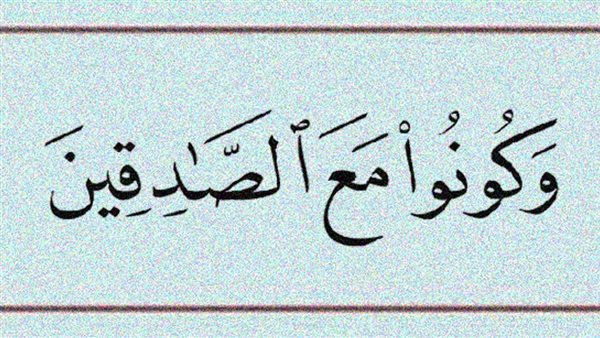 وَكُونُوا۟ مَعَ ٱلصَّـٰدِقِينَ